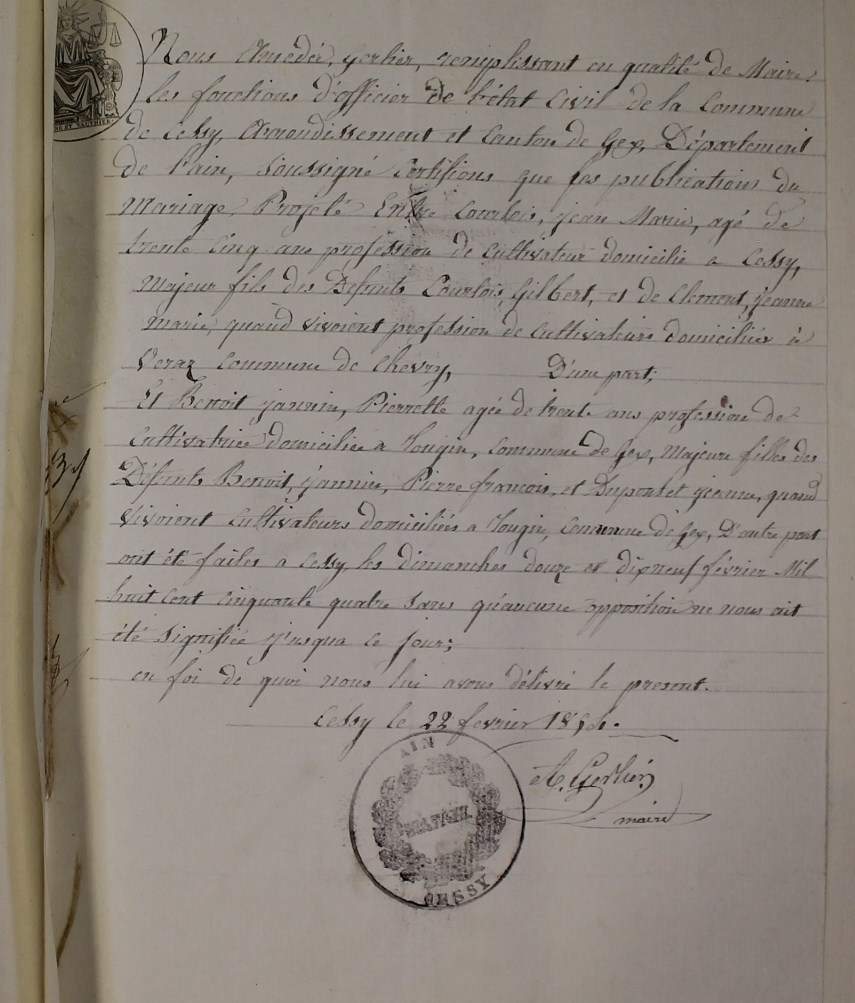 Nous Amédée, Gerlier, remplissant en qualité de Maire
les fonctions d'officier de l'état Civil de la Commune
de Cessy, Arrondissement et Canton de Gex, Département
de l'ain, Soussigné Certifions que les publications du
Mariage, Projeté Entre Courtois, jean Marie, agé de
trente Cinq ans profession de Cultivateur domicilié a Cessy,
Majeur fils des Défunts Courtois, Gilbert, et de Clement, jeanne
marie, quand vivoient profession de Cultivateurs domiciliés à
Veraz Commune de Chevry, D'une part;
Et Benoit jannin, Pierrette agée de trente ans profession de
Cultivatrice domiciliée a Tougin, Commune de Gex, Majeure fille des
Défunts Benoit, jannin, Pierre francois, et Dupontet jeanne, quand
vivoient Cultivateurs domiciliés a Tougin, Commune de Gex, D'autre part
ont été faites a Cessy les dimanches douze et dixneuf février Mil
huit cent cinquante quatre sans qu'aucune opposition ne nous ait
été signifiée j'usqua ce jour;
en foi de quoi nous lui avons délivré le present.
Cessy le 22 fevrier 1854.
A. Gerlier
maire
AIN
CESSY